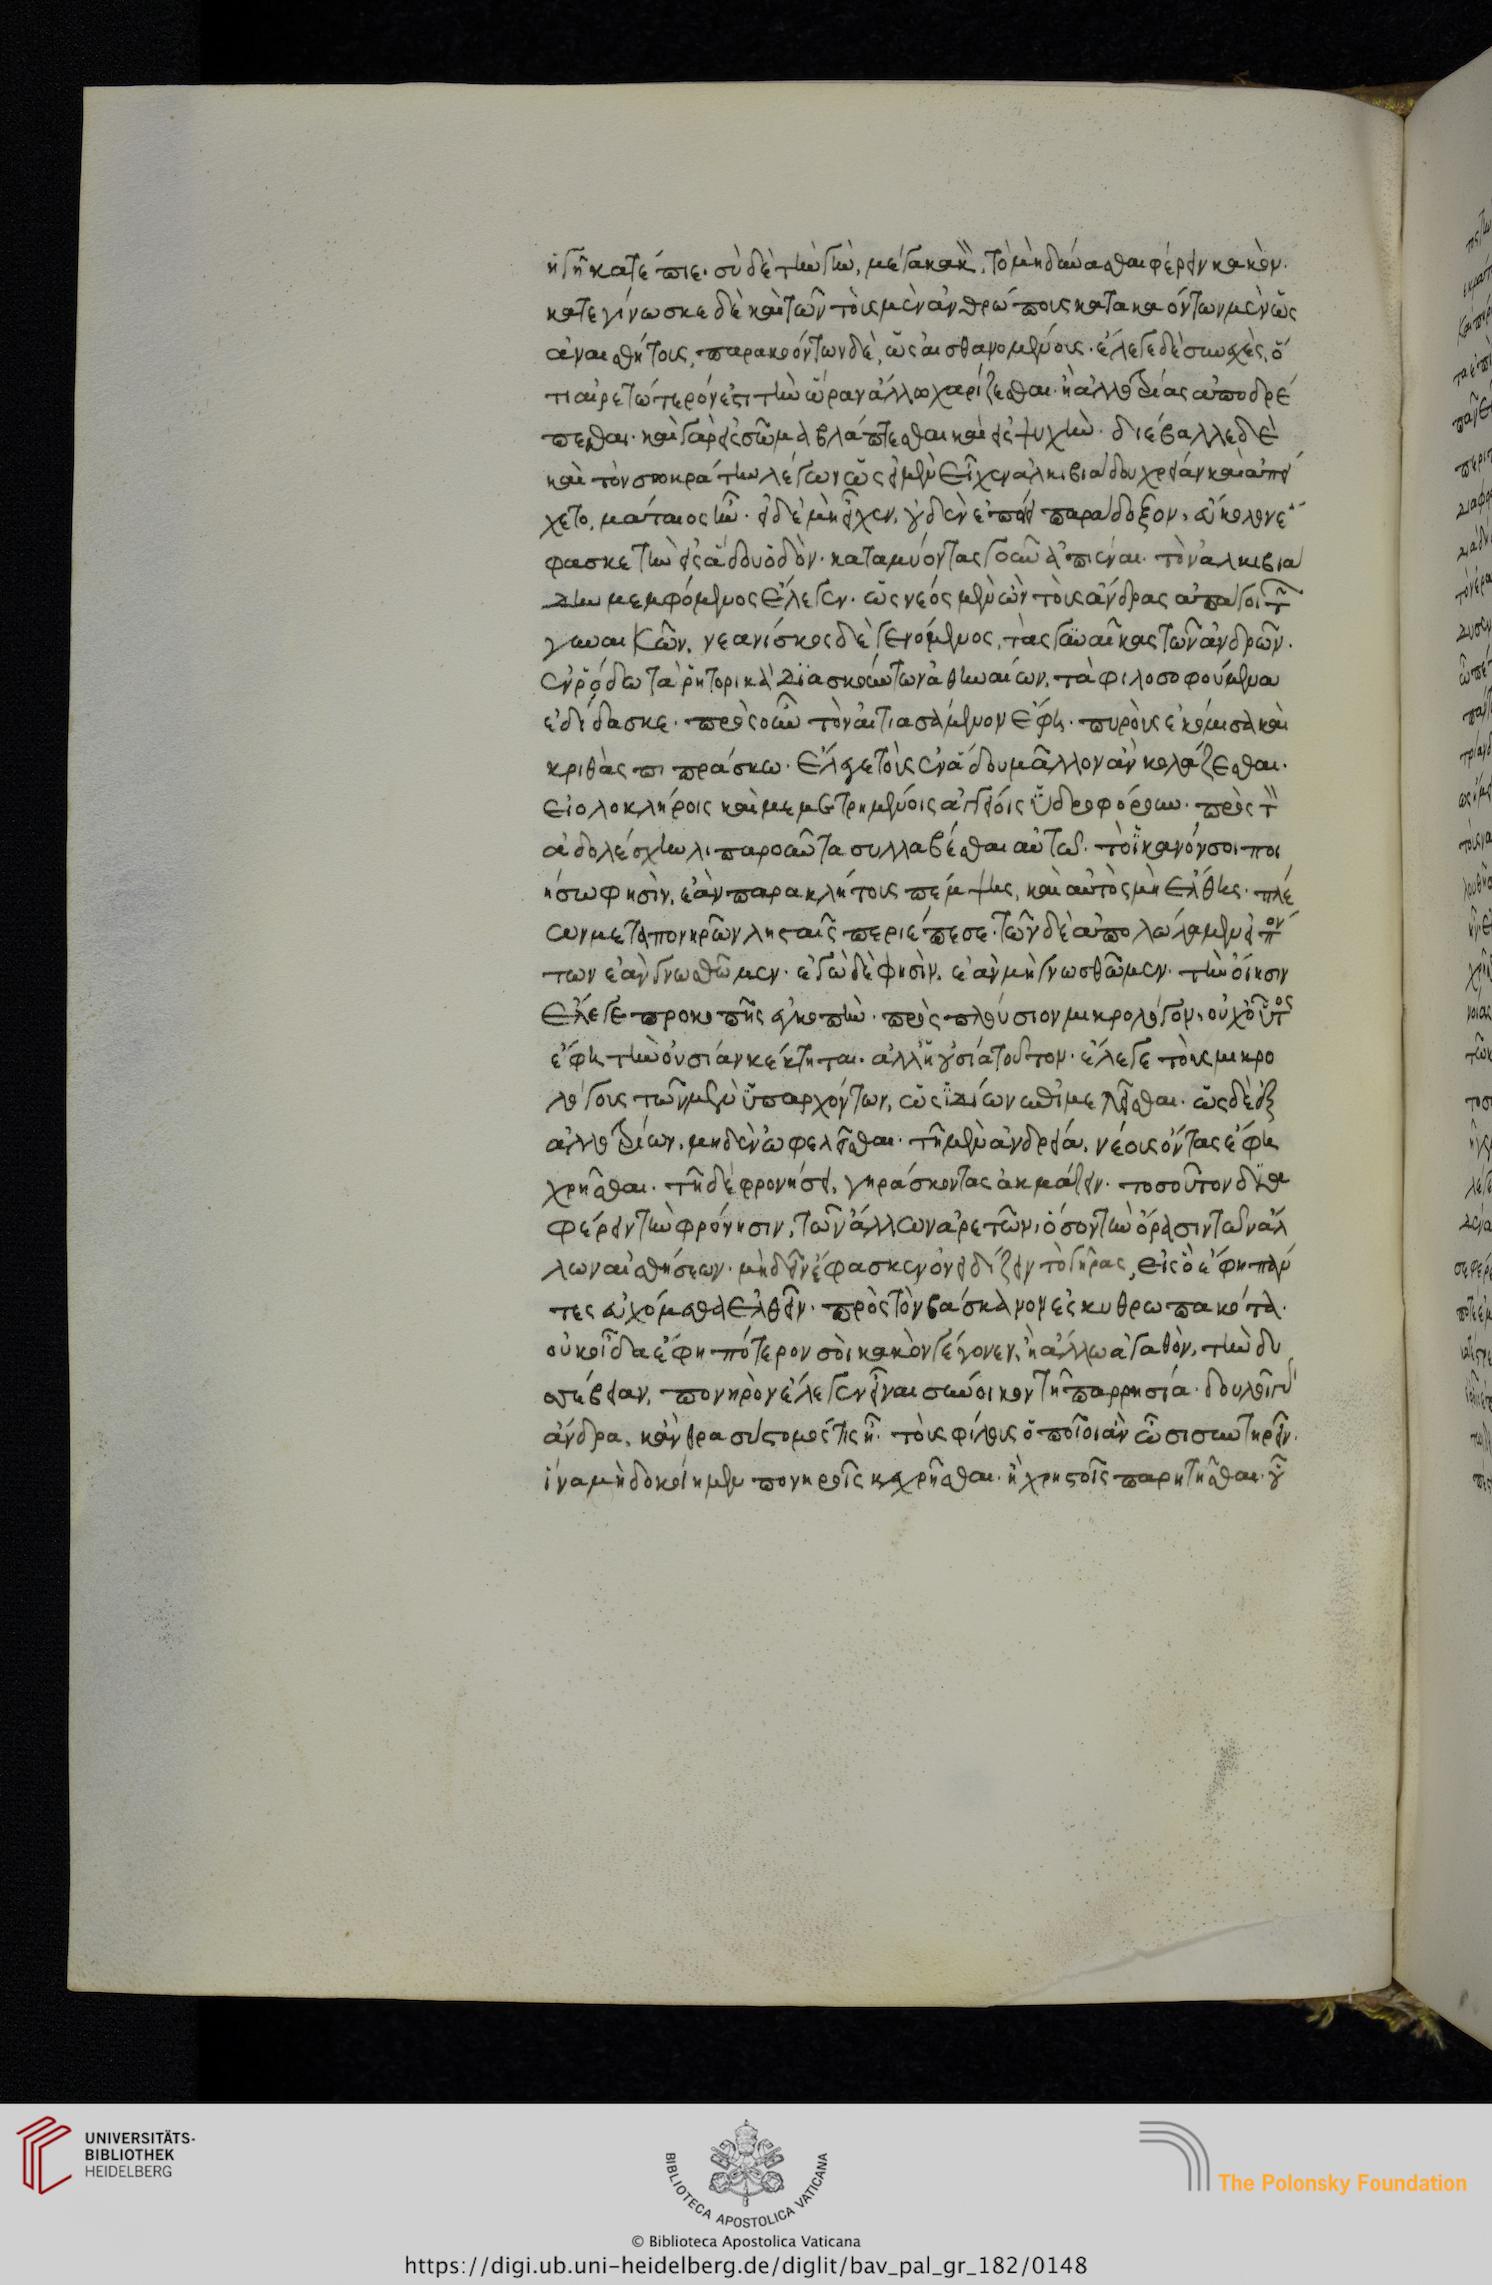 ἡ γῆ κατέπιε. σὺ δὲ τὴν γῆν, μέγα κακὸν, τὸ μὴ δύνασθαι φέρειν κακόν.
κατεγίνωσκε δὲ καὶ τῶν τοὺς μὲν ἀνθρώπους κατακαόντων μὲν ὡς
ἀναισθήτους, παρακαόντων δὲ, ὡς αἰσθανομένους. ἔλεγε δὲ συνεχὲς, ὅ
τι αἱρετώτερόν ἐστι τὴν ὥραν ἄλλῳ χαρίζεσθαι. ἢ ἀλλοτρίας ἀποδρέ
πεσθαι. καὶ γὰρ εἰς σῶμα βλάπτεσθαι καὶ εἰς ψυχήν. διέβαλλε δὲ
καὶ τὸν σωκράτην λέγων ὡς εἰ μὲν εἶχεν ἀλκιβιάδου χρείαν καὶ ἀπεί
χετο, μάταιος ἦν. εἰ δὲ μὴ εἶχεν, οὐδὲν ἐποίει παράδοξον, εὔκολον ἔ
φασκε τὴν εἰς ἅδου ὁδόν. καταμύοντας γοῦν ἀπιέναι. τὸν ἀλκιβιά
δην μεμφόμενος ἔλεγεν. ὡς νέος μὲν ὢν τοὺς ἄνδρας ἀπάγοι τῶν
γυναικῶν, νεανίσκος δὲ γενόμενος, τὰς γυναῖκας τῶν ἀνδρῶν.
ἐν ῥόδῳ τὰ ῥητορικὰ διασκούντων ἀθηναίων, τὰ φιλοσοφούμενα
ἐδίδασκε. πρὸς οὖν τὸν αἰτιασάμενον ἔφη. πυροὺς ἐκόμισα καὶ
κριθὰς πιπράσκω. ἔλεγε τοὺς ἐν ἅδου μᾶλλον ἂν κολάζεσθαι.
εἰ ὁλοκλήροις καὶ μὴ τετρημένοις ἀγγείοις ὑδροφόρουν. πρὸς τὸν
ἀδολέσχην λιπαροῦντα συλλαβέσθαι αὐτῷ. τὸ ἱκανόν σοι ποι
ήσω φησὶν, ἐὰν παρακλήτους πέμψῃς, καὶ αὐτὸς μὴ ἔλθῃς. πλέ
ων μετὰ πονηρῶν λῃσταῖς περιέπεσε. τῶν δὲ ἀπολώλαμεν εἰπόν
των ἐὰν γνωσθῶμεν. ἐγὼ δὲ φησὶν, ἐὰν μὴ γνωσθῶμεν. τὴν οἴησιν
ἔλεγε προκοπῆς ἐγκοπήν. πρὸς πλούσιον μικρολόγον, οὐχ οὗτος
ἔφη τὴν οὐσίαν κέκτηται. ἀλλ' ἡ οὐσία τοῦτον. ἔλεγε τοὺς μικρο
λόγους τῶν μὲν ὑπαρχόντων, ὡς ἰδίων ἐπιμελεῖσθαι. ὡς δὲ ἐξ
ἀλλοτρίων, μηδὲν ὠφελεῖσθαι. τῇ μὲν ἀνδρείᾳ, νέους ὄντας ἔφη
χρῆσθαι. τῇ δὲ φρονήσει, γηράσκοντας ἀκμάζειν. τοσοῦτον δια
φέρειν τὴν φρόνησιν, τῶν ἄλλων ἀρετῶν, ὅσον τὴν ὅρασιν τῶν ἄλ
λων αἰσθήσεων. μὴ δεῖν ἔφασκεν ὀνειδίζειν τὸ γῆρας, εἰς ὃ ἔφη πάν
τες εὐχόμεθα ἐλθεῖν. πρὸς τὸν βάσκανον ἐσκυθρωπακότα.
οὐκ οἶδα ἔφη πότερον σοὶ κακὸν γέγονεν, ἢ ἄλλῳ ἀγαθόν, τὴν δυ
σσέβειαν, πονηρὸν ἔλεγεν εἶναι σύνοικον τῇ παρρησίᾳ. δουλοῖ γὰρ
ἄνδρα, κἂν θρασύστομός τις ᾖ. τοὺς φίλους ὁποῖοι ἂν ὦσι συντηρεῖν.
ἵνα μὴ δοκοίημεν πονηροῖς κεχρῆσθαι. ἢ χρηστοῖς παρητῆσθαι. οὗ
UNIVERSITÄTS-
BIBLIOTHEK
HEIDELBERG
BIBLIOTECA APOSTOLICA VATICANA
The Polonsky Foundation
© Biblioteca Apostolica Vaticana
https://digi.ub.uni-heidelberg.de/diglit/bav_pal_gr_182/0148